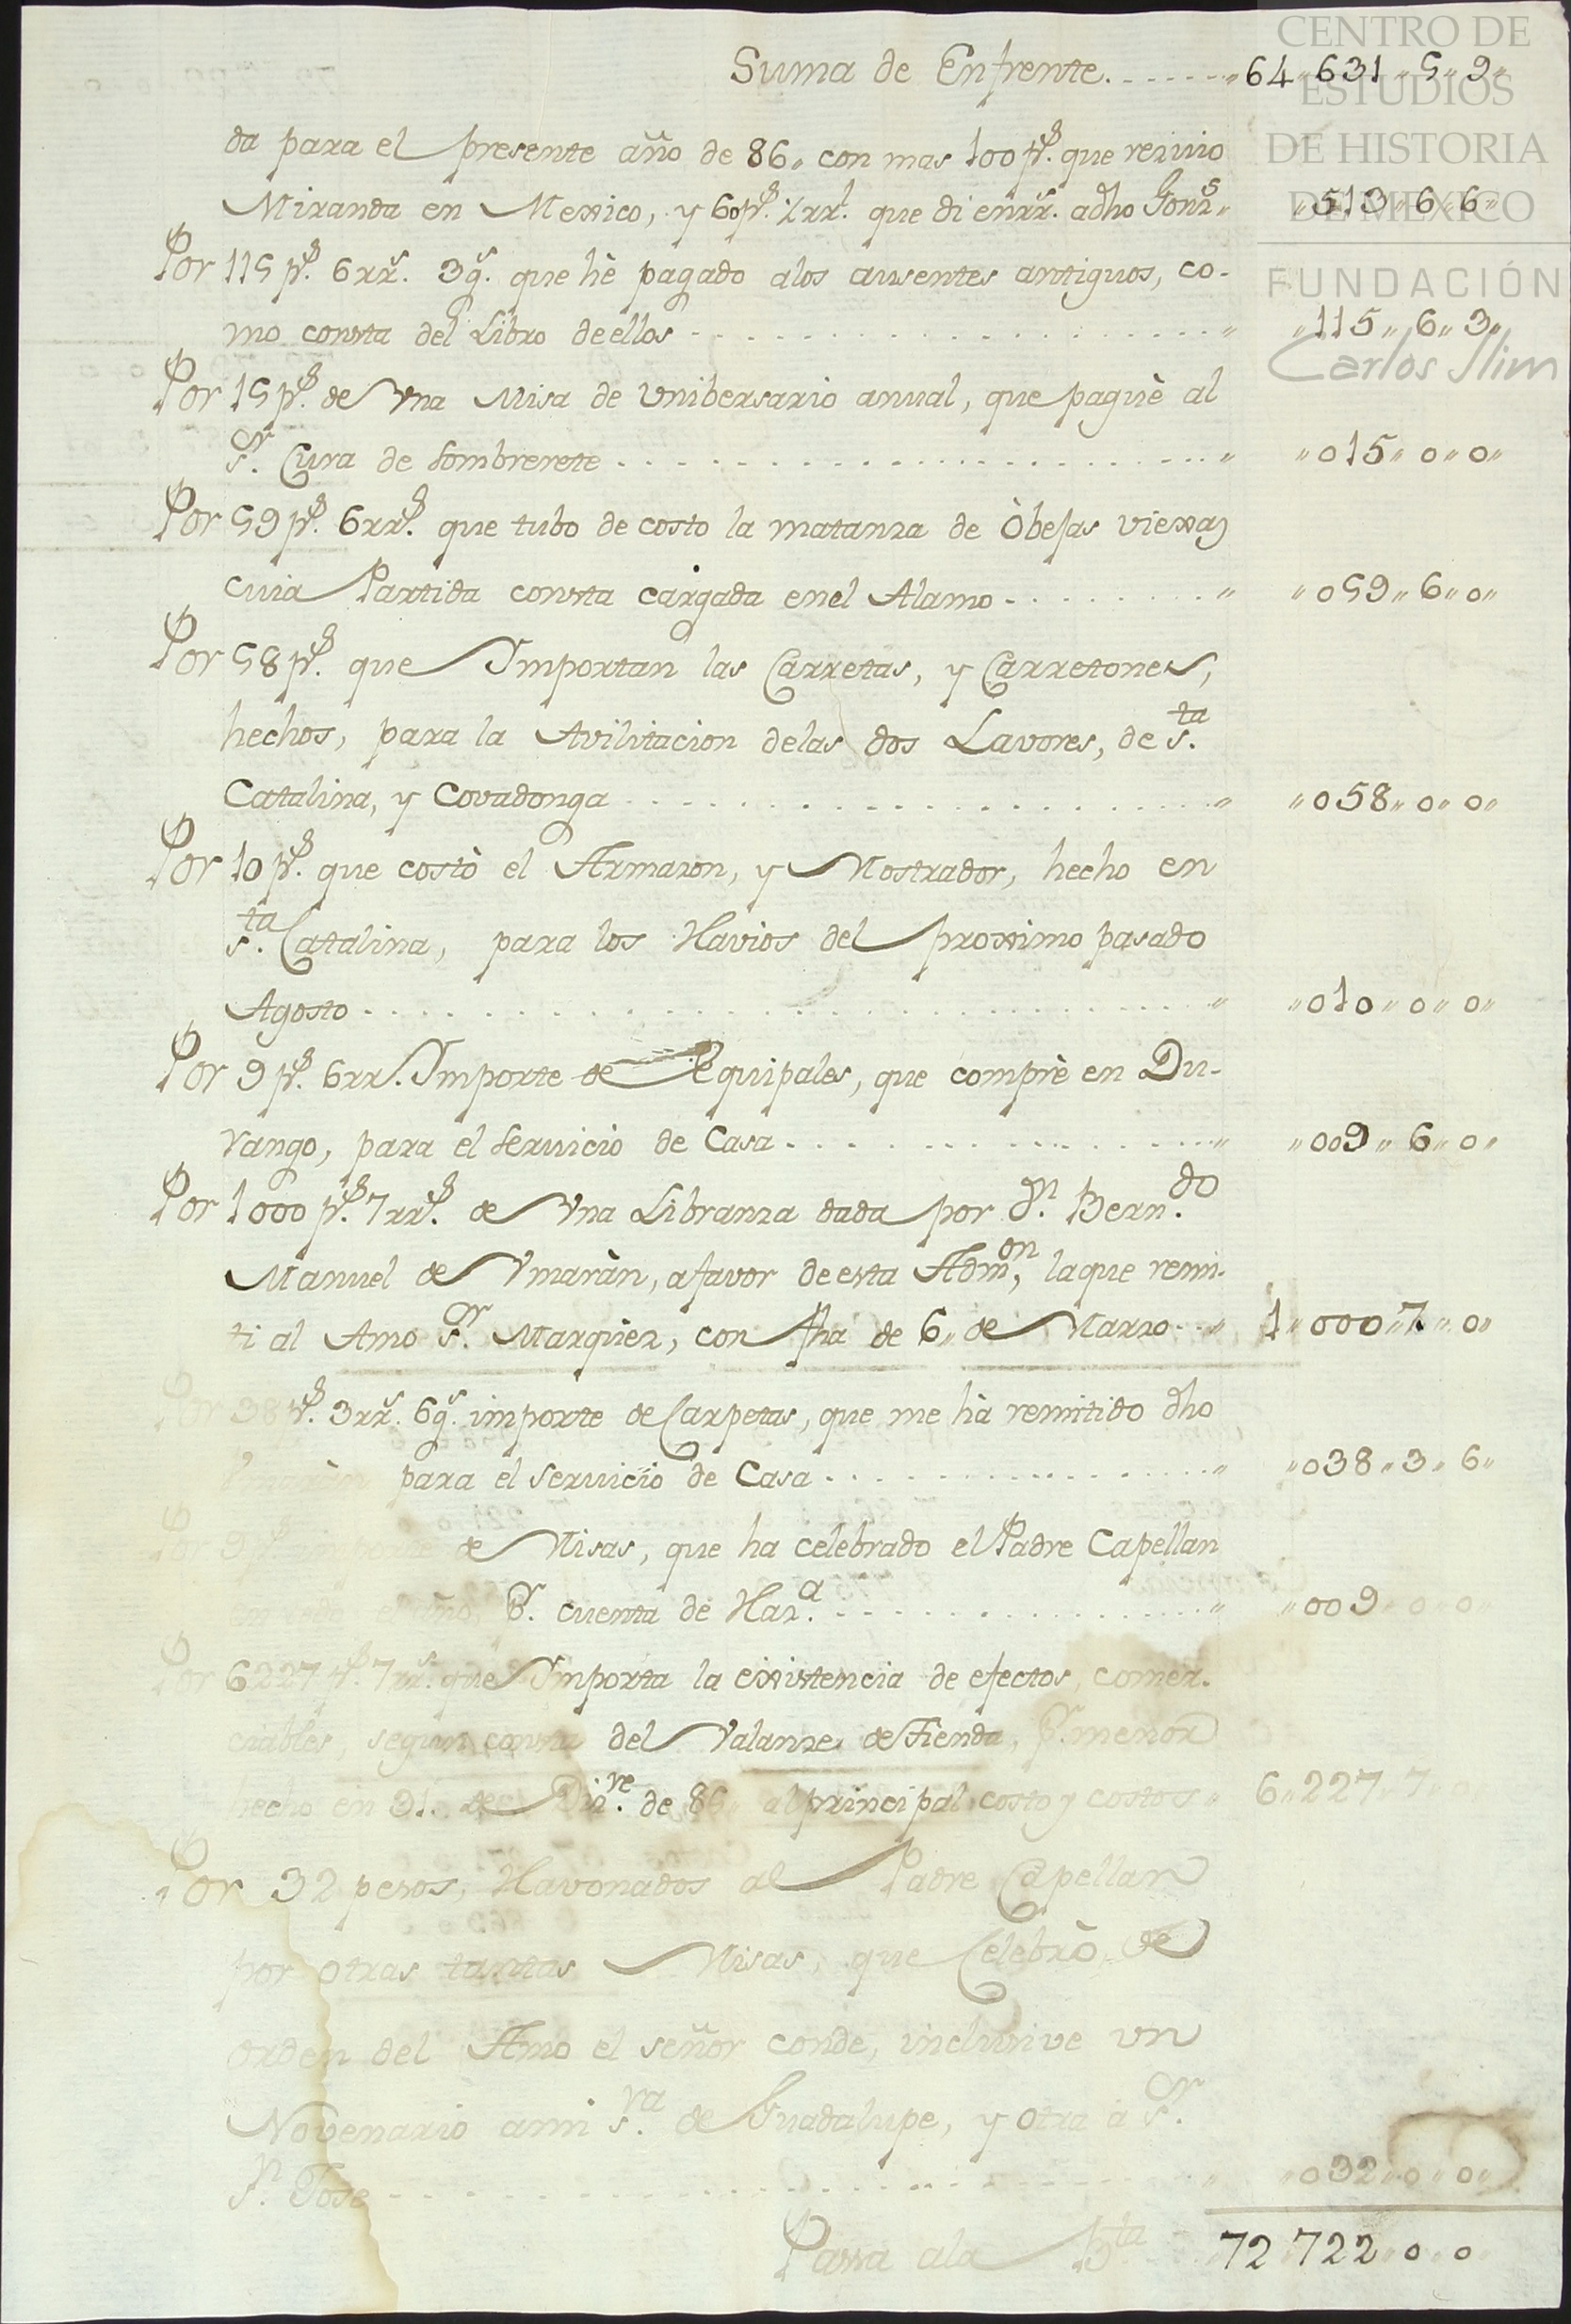 CENTRO DE
ESTUDIOS
DE HISTORIA
DE MEXICO
FUNDACIÓN
Carlos Slim
Suma de Enfrente. . . . . . . " 64 " 631 " 5 " 9 "
da para el presente año de 86,, con mas 100 ps. que reciuio
Miranda en Mexico, y 60 ps. rrl. que di enrrs. adho Gonz " 513 " 6 " 6 "
Por 115 ps. 6 rrs. 3 gs. que hè pagado alos ausentes antiguos, co-
mo consta del Libro deellos - . . . . . . . . . . . . " " 115 " 6 " 3 "
Por 15 ps. de Vna Misa de Vnibersario anual, que paguè al
Sr. Cura de Sombrerete . . . . . . . . . . . . " " 015 " 0 " 0 "
Por 59 ps. 6 rrs. que tubo de costo la matanza de Òbejas viexas
cuia Partida consta cargada enel Alamo - . . . . . . " " 059 " 6 " 0 "
Por 58 ps. que Ymportan las Carretas, y Carretones,
hechos, para la Avilitacion delas dos Lavores, de Sta.
Catalina, y Covadonga . . . . . . . . . . . . " " 058 " 0 " 0 "
Por 10 ps. que costò el Armazon, y Mostrador, hecho en
Sta. Catalina, para los Havios del proximo pasado
Agosto . . . . . . . . . . . . . . . " " 010 " 0 " 0 "
Por 9 ps. 6 rrs. Ymporte de Equipales, que comprè en Du-
rango, para el Servicio de Casa - . . . . . . . . . " " 009 " 6 " 0 "
Por 1000 ps. 7 rrs. de Vna Libranza dada por Dn. Berndo.
Manuel de Ymaràn, afavor deesta Admon, laque remi-
ti al Amo Sr. Marquez, con fha de 6,, de Marzo - . " 1 " 000 " 7 " 0 "
Por 38 ps. 3 rrs. 6 gs. importe de Carpetas, que me hà remitido dho
para el Servicio de Casa . . . . . . . . . . . " " 038 " 3 " 6 "
Por 9 ps. de Misas, que ha celebrado el Padre Capellan
el año, Pr. cuenta de Haza. - . . . . . . . . . . " " 009 " 0 " 0 "
Por 6227 ps. 7 rrs. que Ymporta la existencia de efectos, comer-
ciables, segun consta del Valanze de Tienda, pr. menor
hecho en 31 de Dizre. de 86,, al principal costo y costos " 6 " 227 " 7 " 0
Por 32 pesos, Havonados al Padre Capellan
por otras tantas Misas, que Celebrò de
orden del Amo el señor conde, inclusive vn
Novenario ami Sra. de Guadalupe, y otra à Sr.
Sn. Jose - - . . . . . . . . . . . . " " 032 " 0 " 0 "
Passa ala Bta 72 " 722 " 0 " 0